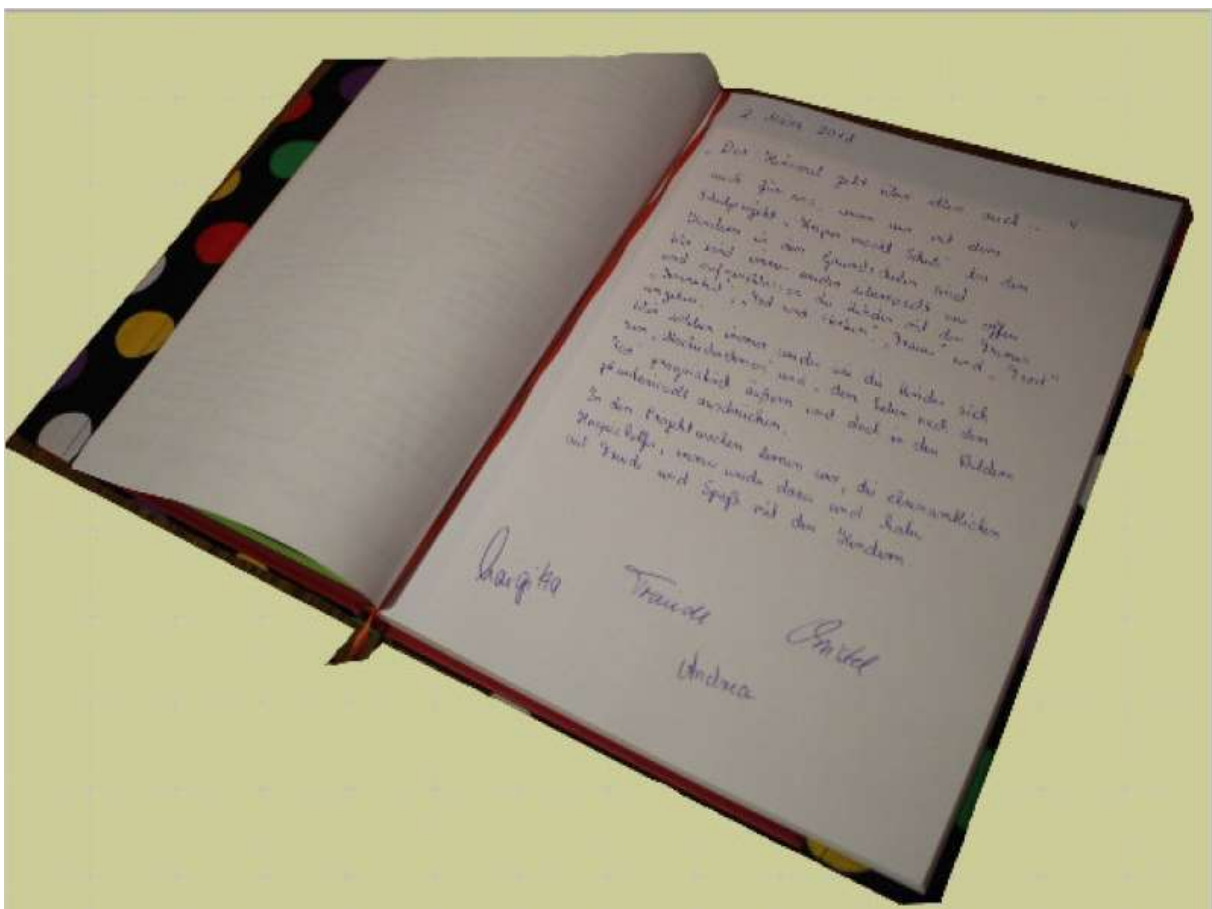 2. März 2018
„Der Himmel geht über allen auf..."
auch für uns, wenn wir mit dem
Schulprojekt „Hospiz macht Schule" bei den
Kindern in den Grundschulen sind.
Wir sind immer wieder überrascht wie offen
und aufgeschlossen die Kinder mit den Themen
„Krankheit", „Tod und Sterben", „Trauer" und „Trost"
umgehen.
Wir erleben immer wieder wie die Kinder sich
zum „Abschiednehmen und dem Leben nach dem
Tod" pragmatisch äußern und doch in den Bildern
phantasievoll ausdrücken.
In den Projektwochen lernen wir, die ehrenamtlichen
Hospizhelfer, immer wieder dazu und haben
viel Freude und Spaß mit den Kindern.
Margitta Traudl Christel
Andrea